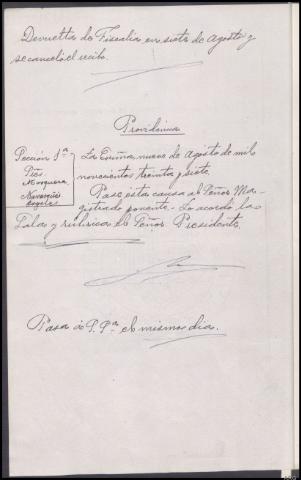 Devuelta de Fiscalía en siete de Agosto y
se canceló el recibo.
Providencia
Sección 1ª
Sres.
Mosquera
Navarro
La Coruña, nueve de Agosto de mil
novecientos treinta y siete.
Pase esta causa al Señor Ma-
gistrado ponente.- Lo acordó la
Sala y rubrica el Señor Presidente.
Pasa á S. Sª el mismo dia.